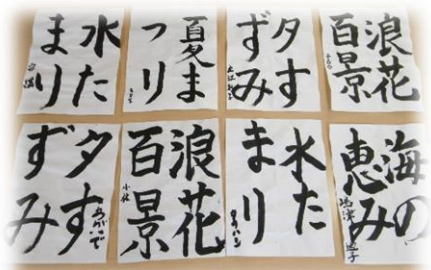 水た
まり
夏ま
つり
夕す
ずみ
浪花
百景
夕す
ずみ
浪花
百景
水た
まり
海の
恵み